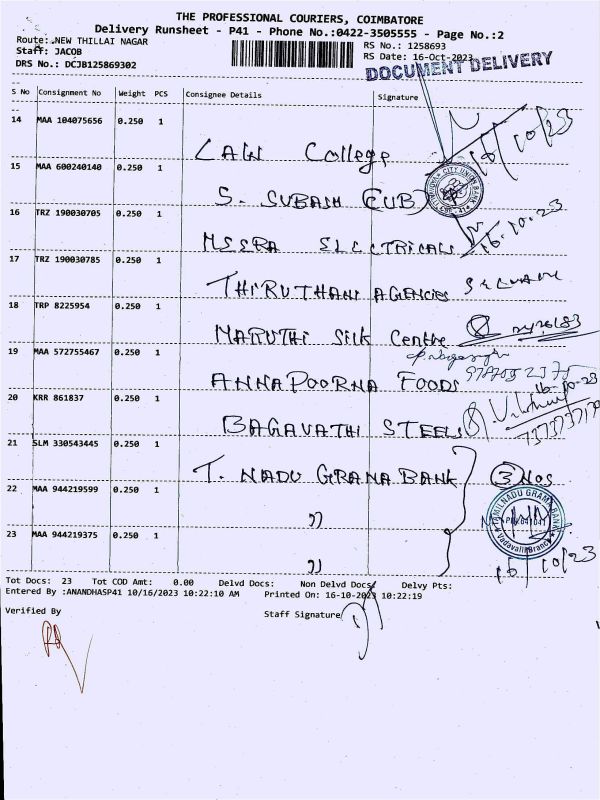 THE PROFESSIONAL COURIERS, COIMBATORE
Delivery Runsheet - P41 - Phone No.:0422-3505555 - Page No.:2
Route: NEW THILLAI NAGAR
RS No.: 1258693
Staff: JACOB
RS Date: 16-Oct-2023
DRS No.: DCJB125869302
DOCUMENT DELIVERY
S No Consignment No Weight PCS Consignee Details Signature
14 MAA 104075656 0.250 1
LAW College 16/10/23
15 MAA 600240140 0.250 1
S. SUBASH (CUB)
CITY UNION BANK
16 TRZ 190030705 0.250 1
MSSRA ELECTRICALS 16.10.23
17 TRZ 190030785 0.250 1
THIRUTHANI AGENCIES
18 TRP 8225954 0.250 1
MARUTHI Silk Centre
19 MAA 572755467 0.250 1
ANNAPOORNA FOODS
16-10-23
20 KRR 861837 0.250 1
BAGAVATHI STEELS
21 SLM 330543445 0.250 1
T. NADU GRAMA BANK 3 Nos
22 MAA 944219599 0.250 1
"
TAMILNADU GRAMA BANK
Vadavalli Branch
23 MAA 944219375 0.250 1
"
16/10/23
Tot Docs: 23 Tot COD Amt: 0.00 Delvd Docs: Non Delvd Docs: Delvy Pts:
Entered By :ANANDHASP41 10/16/2023 10:22:10 AM Printed On: 16-10-2023 10:22:19
Verified By
Staff Signature